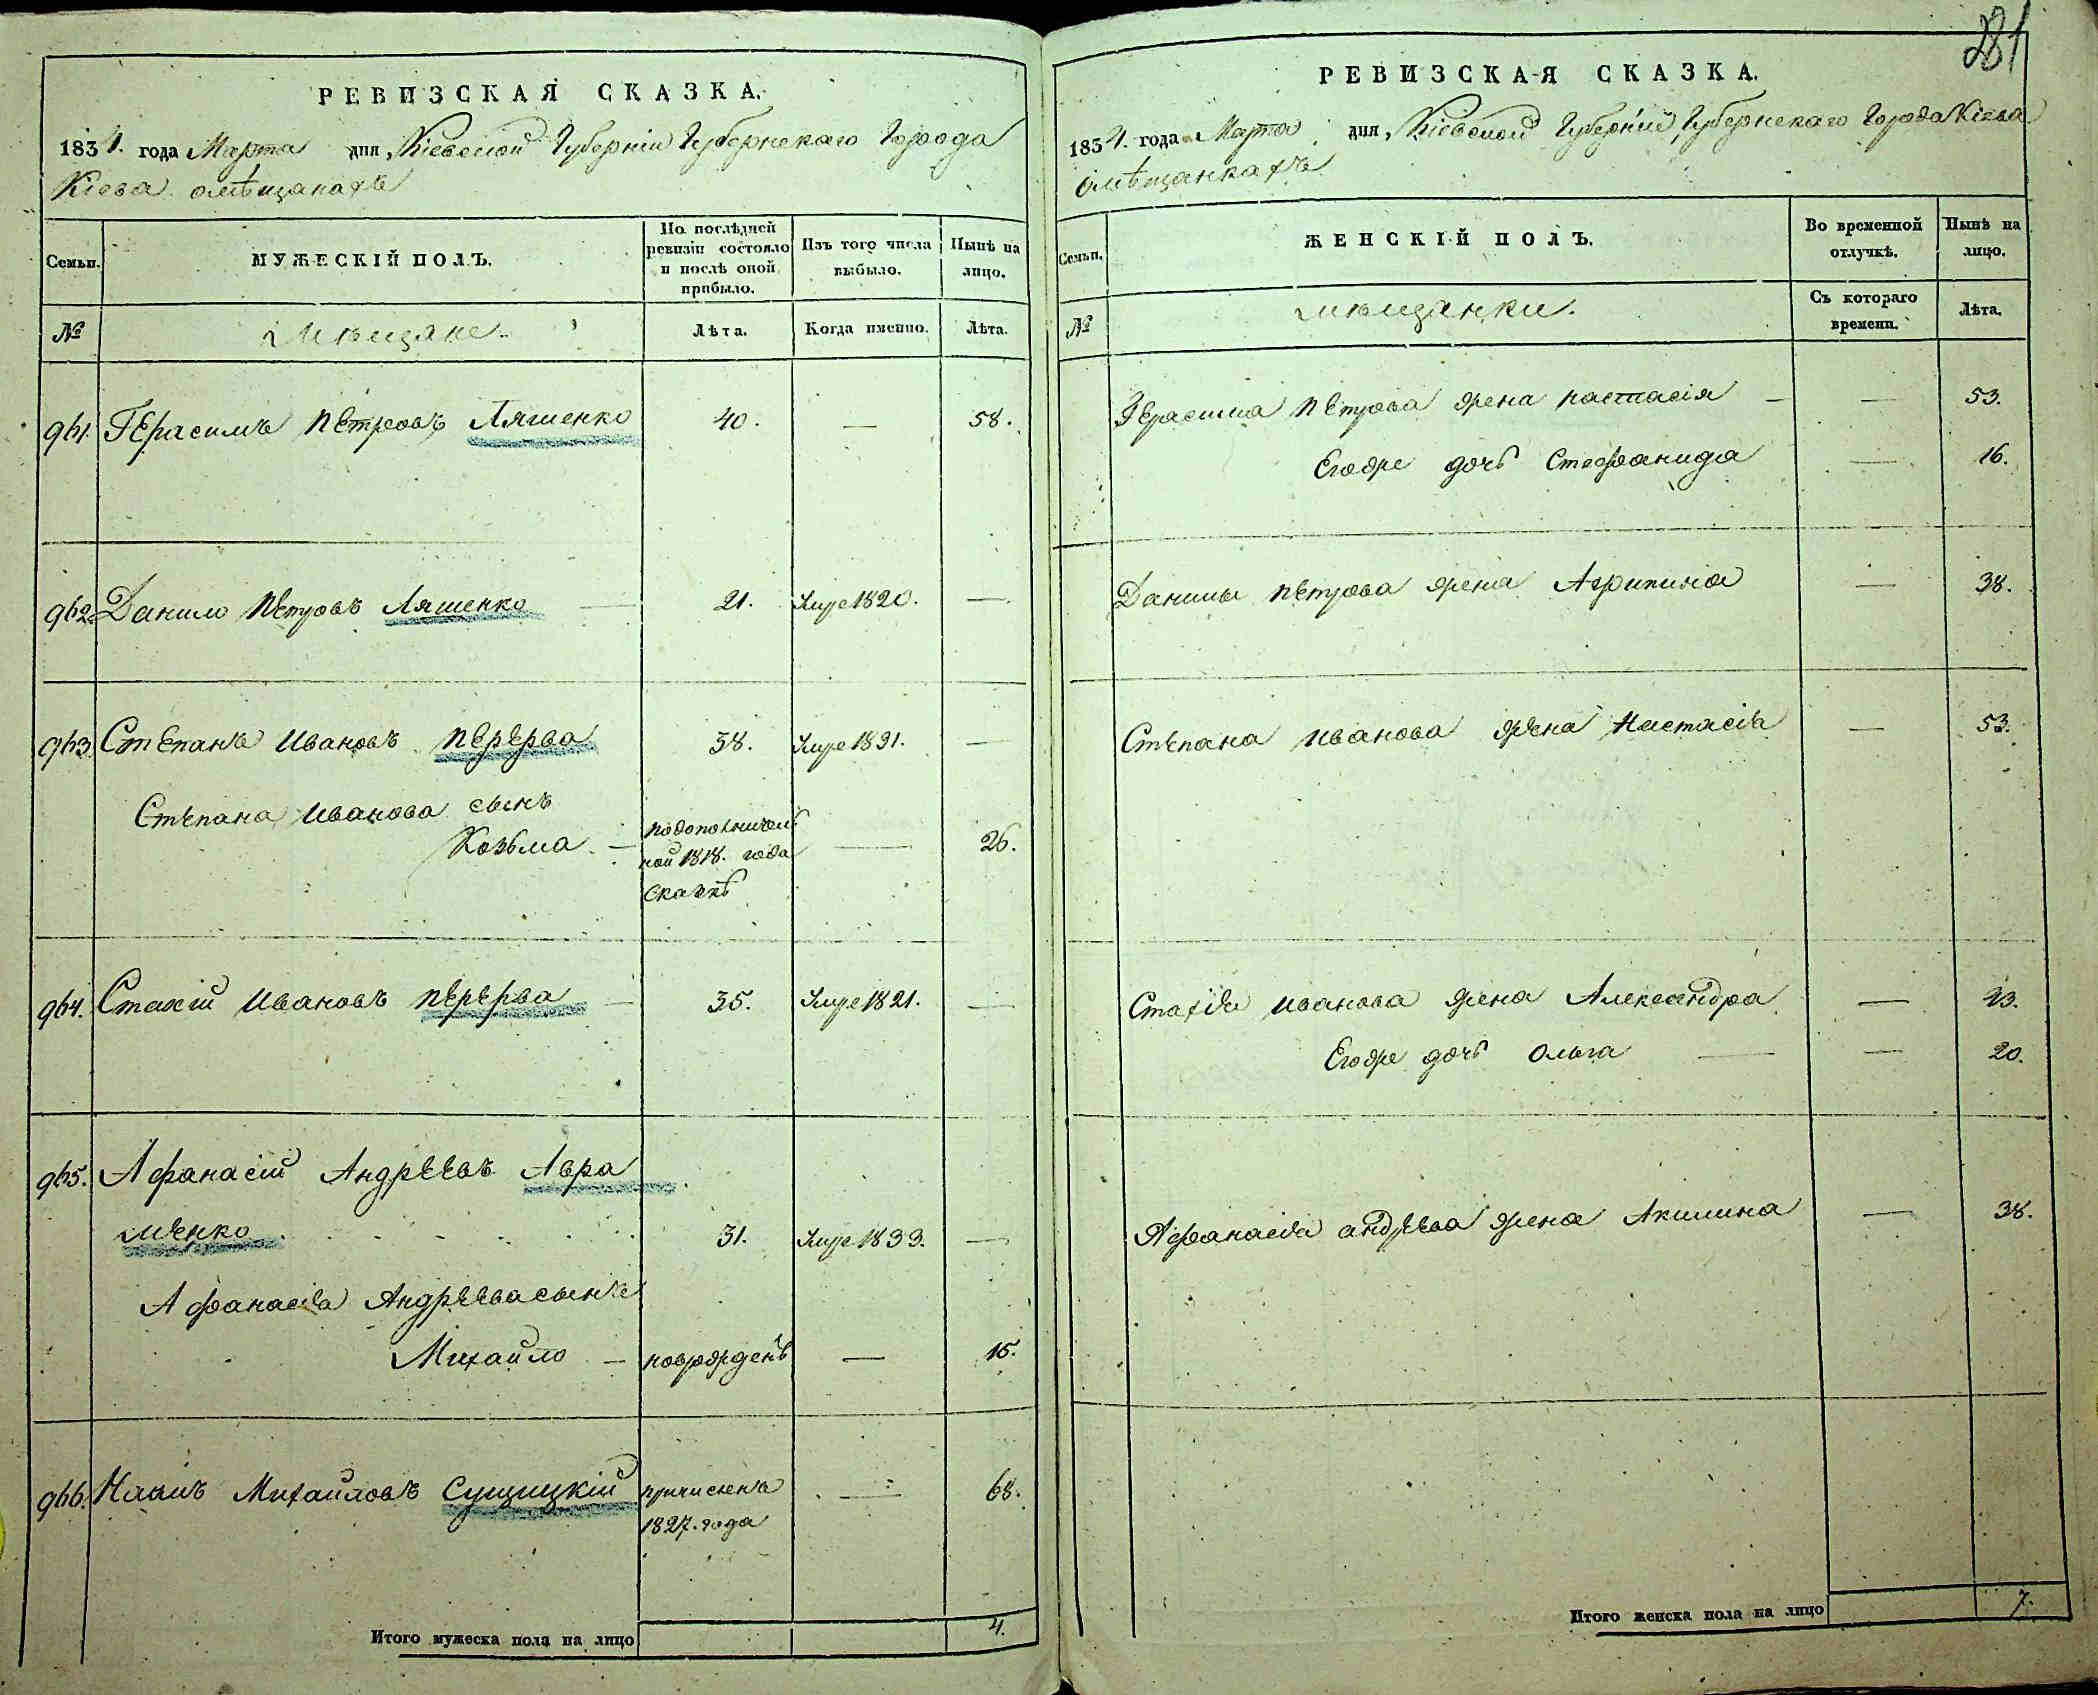 РЕВИЗСКАЯ СКАЗКА.
1834. года Марта дня, Кіевской Губерніи Губернскаго Города
Кіева омѣщанахъ
Семьи.
МУЖЕСКІЙ ПОЛЪ.
По послѣдней ревизіи состояло и послѣ оной прибыло.
Изъ того числа выбыло.
Нынѣ на лицо.
№
Мѣщане.
Лѣта.
Когда именно.
Лѣта.
961. Герасимъ Петровъ Ляшенко 40. — 58.
962 Данило Петровъ Ляшенко — 21. Умре 1820. —
963. Степанъ Ивановъ Перерва 38. Умре 1831. —
Степана Иванова сынъ
Козьма — подополнител: ной 1818. года скаскѣ — 26.
964. Стахій Ивановъ Перерва — 35. Умре 1821. —
965. Афанасій Андреевъ Авра
менко 31. Умре 1833. —
Афанасія Андреева сынъ
Михайло — новорожденъ — 15.
966. Михайловъ Сущицкій причисленъ 1827. года — 68.
Итого мужеска пола на лицо 4.
281
РЕВИЗСКАЯ СКАЗКА.
1834. года Марта дня, Кіевской Губерніи Губернскаго Города Кіева
омѣщанкахъ
Семьи.
ЖЕНСКІЙ ПОЛЪ.
Во временной отлучкѣ.
Нынѣ на лицо.
№
мѣщанки.
Съ котораго времени.
Лѣта.
Герасима Петрова жена Настасія — — 53.
Егоже дочь Стефанида — 16.
Данилы Петрова жена Агрипина — 38.
Степана Иванова жена Настасія — 53.
Стахія Иванова жена Александра — 43.
Егоже дочь Ольга — — 20.
Афанасія андреева жена Акилина — 38.
Итого женска пола на лицо 7.